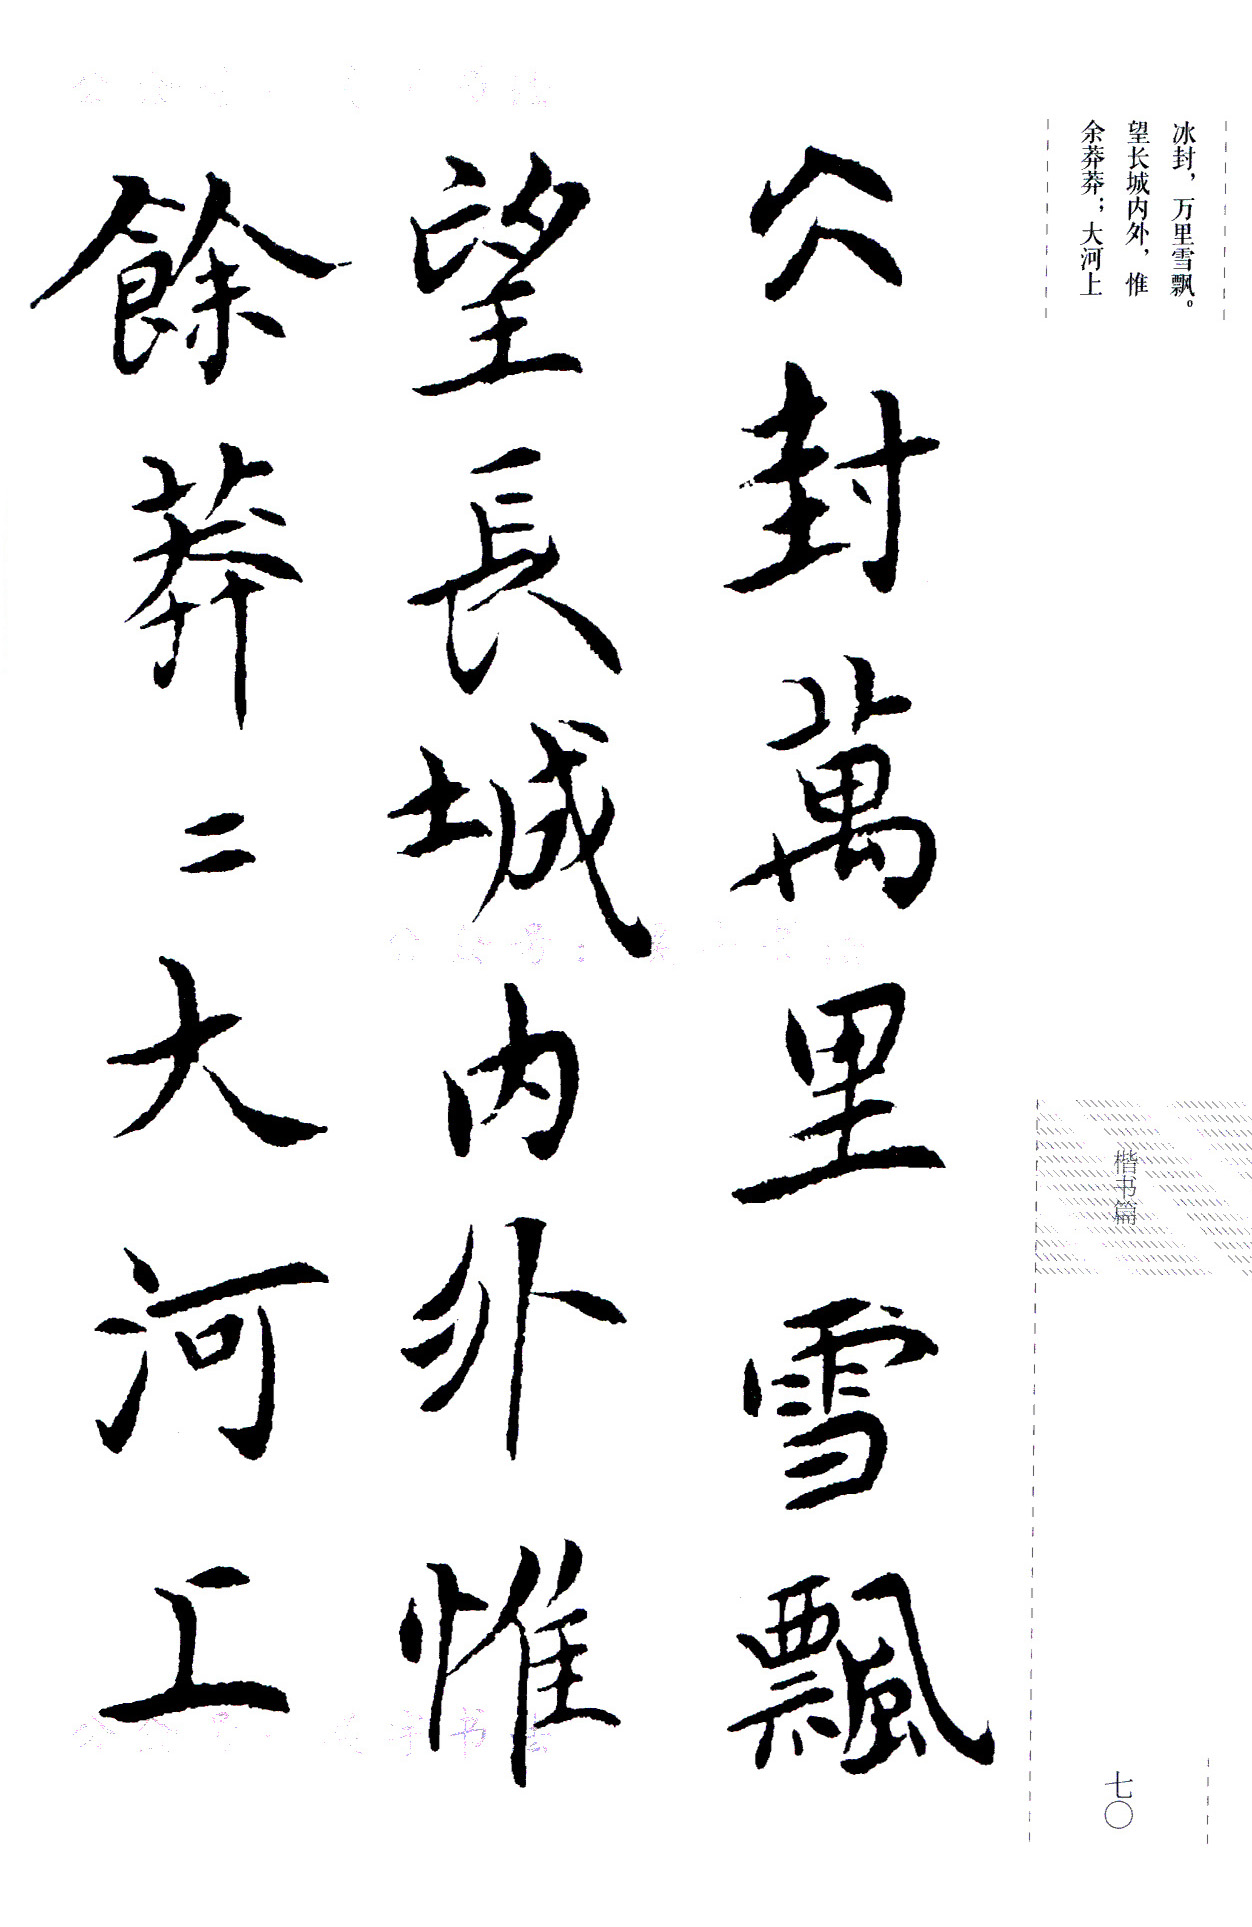 冰封，万里雪飘。
望长城内外，惟
余莽莽；大河上
仌封萬里雪飄
望長城内外惟
餘莽〻大河上
楷书篇
七〇